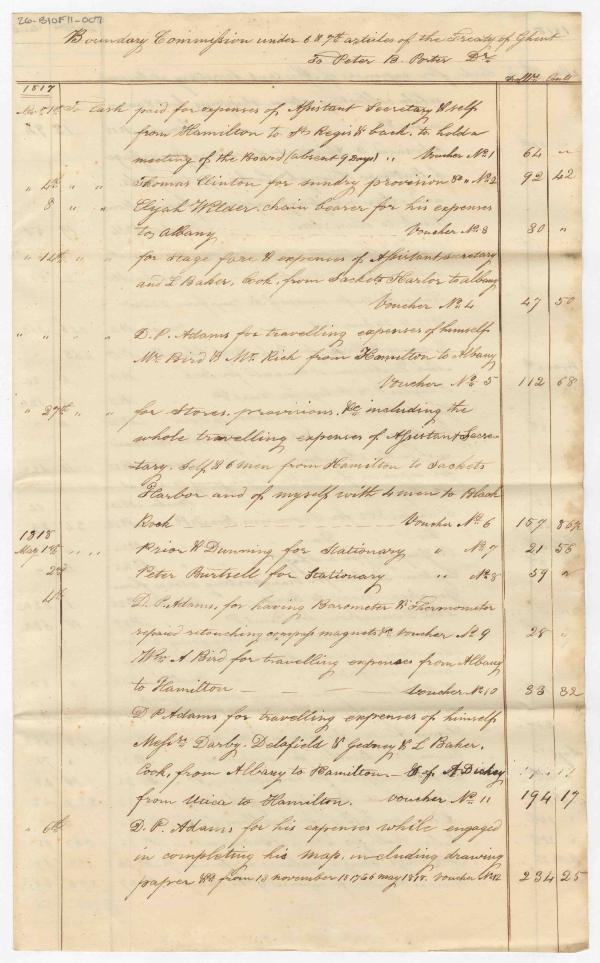 26-B10F11-007
Boundary Commission under 6 & 7th articles of the Treaty of Ghent
To Peter B. Porter Dr.
Dollrs Cents
1817
Novr 1st To Cash paid for expenses of Assistant Secretary & self
from Hamilton to St Regis & back, to hold a
meeting of the Board (absent 9 days) " Voucher No 1 64 "
" 4th " " Thomas Clinton for sundry provision &c " No 2 92 42
8 " " Elijah Wilder, chain bearer for his expenses
to Albany Voucher No. 3 80 "
" 14th " " for Stage fare & expenses of Assistant secretary
and L Baker, Cook, from Sackets Harbor to albany
Voucher No. 4 47 50
" " " " D. P. Adams for travelling expenses of himself
Mr Bird & Mr. Rich from Hamilton to Albany
Voucher No. 5 112 68
" 27th " " for Stores, provisions, &c including the
whole travelling expenses of Assistant Secre-
tary, Self & 6 men from Hamilton to Sackets
Harbor and of myself with 4 men to Black
Rock Voucher No. 6 157 86½
1818
May 1st " " Prior & Dunning for Stationary " No. 7 21 56
2nd Peter Burtsell for Stationary " No. 8 59 "
4th D. P. Adams, for having Barometer & Thermometer
repaired retouching compass magnets &c Voucher No 9 28 "
Wm A Bird for travelling expenses from Albany
to Hamilton Voucher No. 10 33 32
D P Adams for travelling expenses of himself
Messrs Darby, Delafield & Gedney & L Baker,
Cook, from Albany to Hamilton & of A Dickey
from Utica to Hamilton. Voucher No. 11 194 17
" 6th D. P. Adams for his expenses while engaged
in completing his map, including drawing
paper &c from 13 november 1817 to 6 may 1818. Voucher No 12 234 25